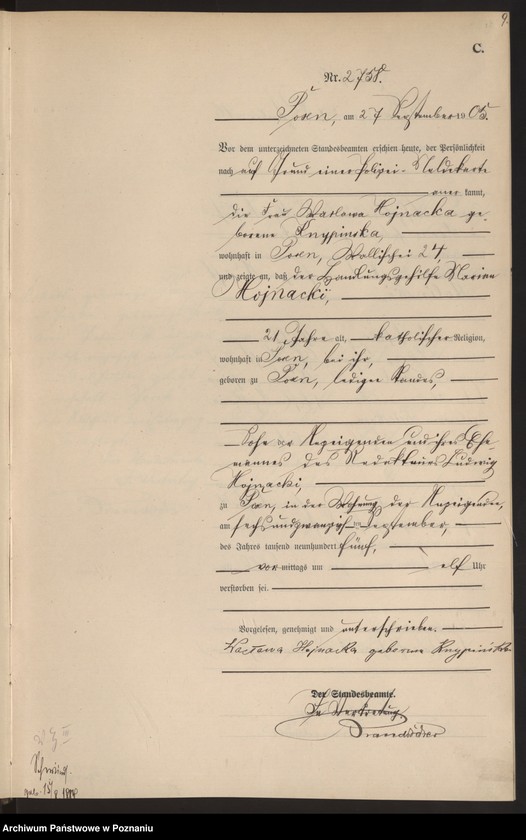 9.
C.
Nr. 2758.
Posen, am 27 September 1905.
Vor dem unterzeichneten Standesbeamten erschien heute, der Persönlichkeit
nach auf Grund einer Polizei-Meldekarte
aner kannt,
die Frau Waclawa Hojnacka ge
borene Knypinska,
wohnhaft in Posen, Wallischei 24,
und zeigte an, daß der Handlungsgehilfe Marian
Hojnacki,
21 Jahre alt, katholischer Religion,
wohnhaft in Posen, bei ihr,
geboren zu Posen, ledigen Standes,
Sohn der Anzeigenden und ihres Ehe
mannes des Redakteurs Ludwig
Hojnacki,
zu Posen, in der Wohnung der Anzeigenden,
am sechsundzwanzigsten September,
des Jahres tausend neunhundert fünf,
vor mittags um elf Uhr
verstorben sei.
Vorgelesen, genehmigt und unterschrieben.
Wacława Hojnacka geborene Knypińska
Der Standesbeamte.
In Vertretung
Archiwum Państwowe w Poznaniu